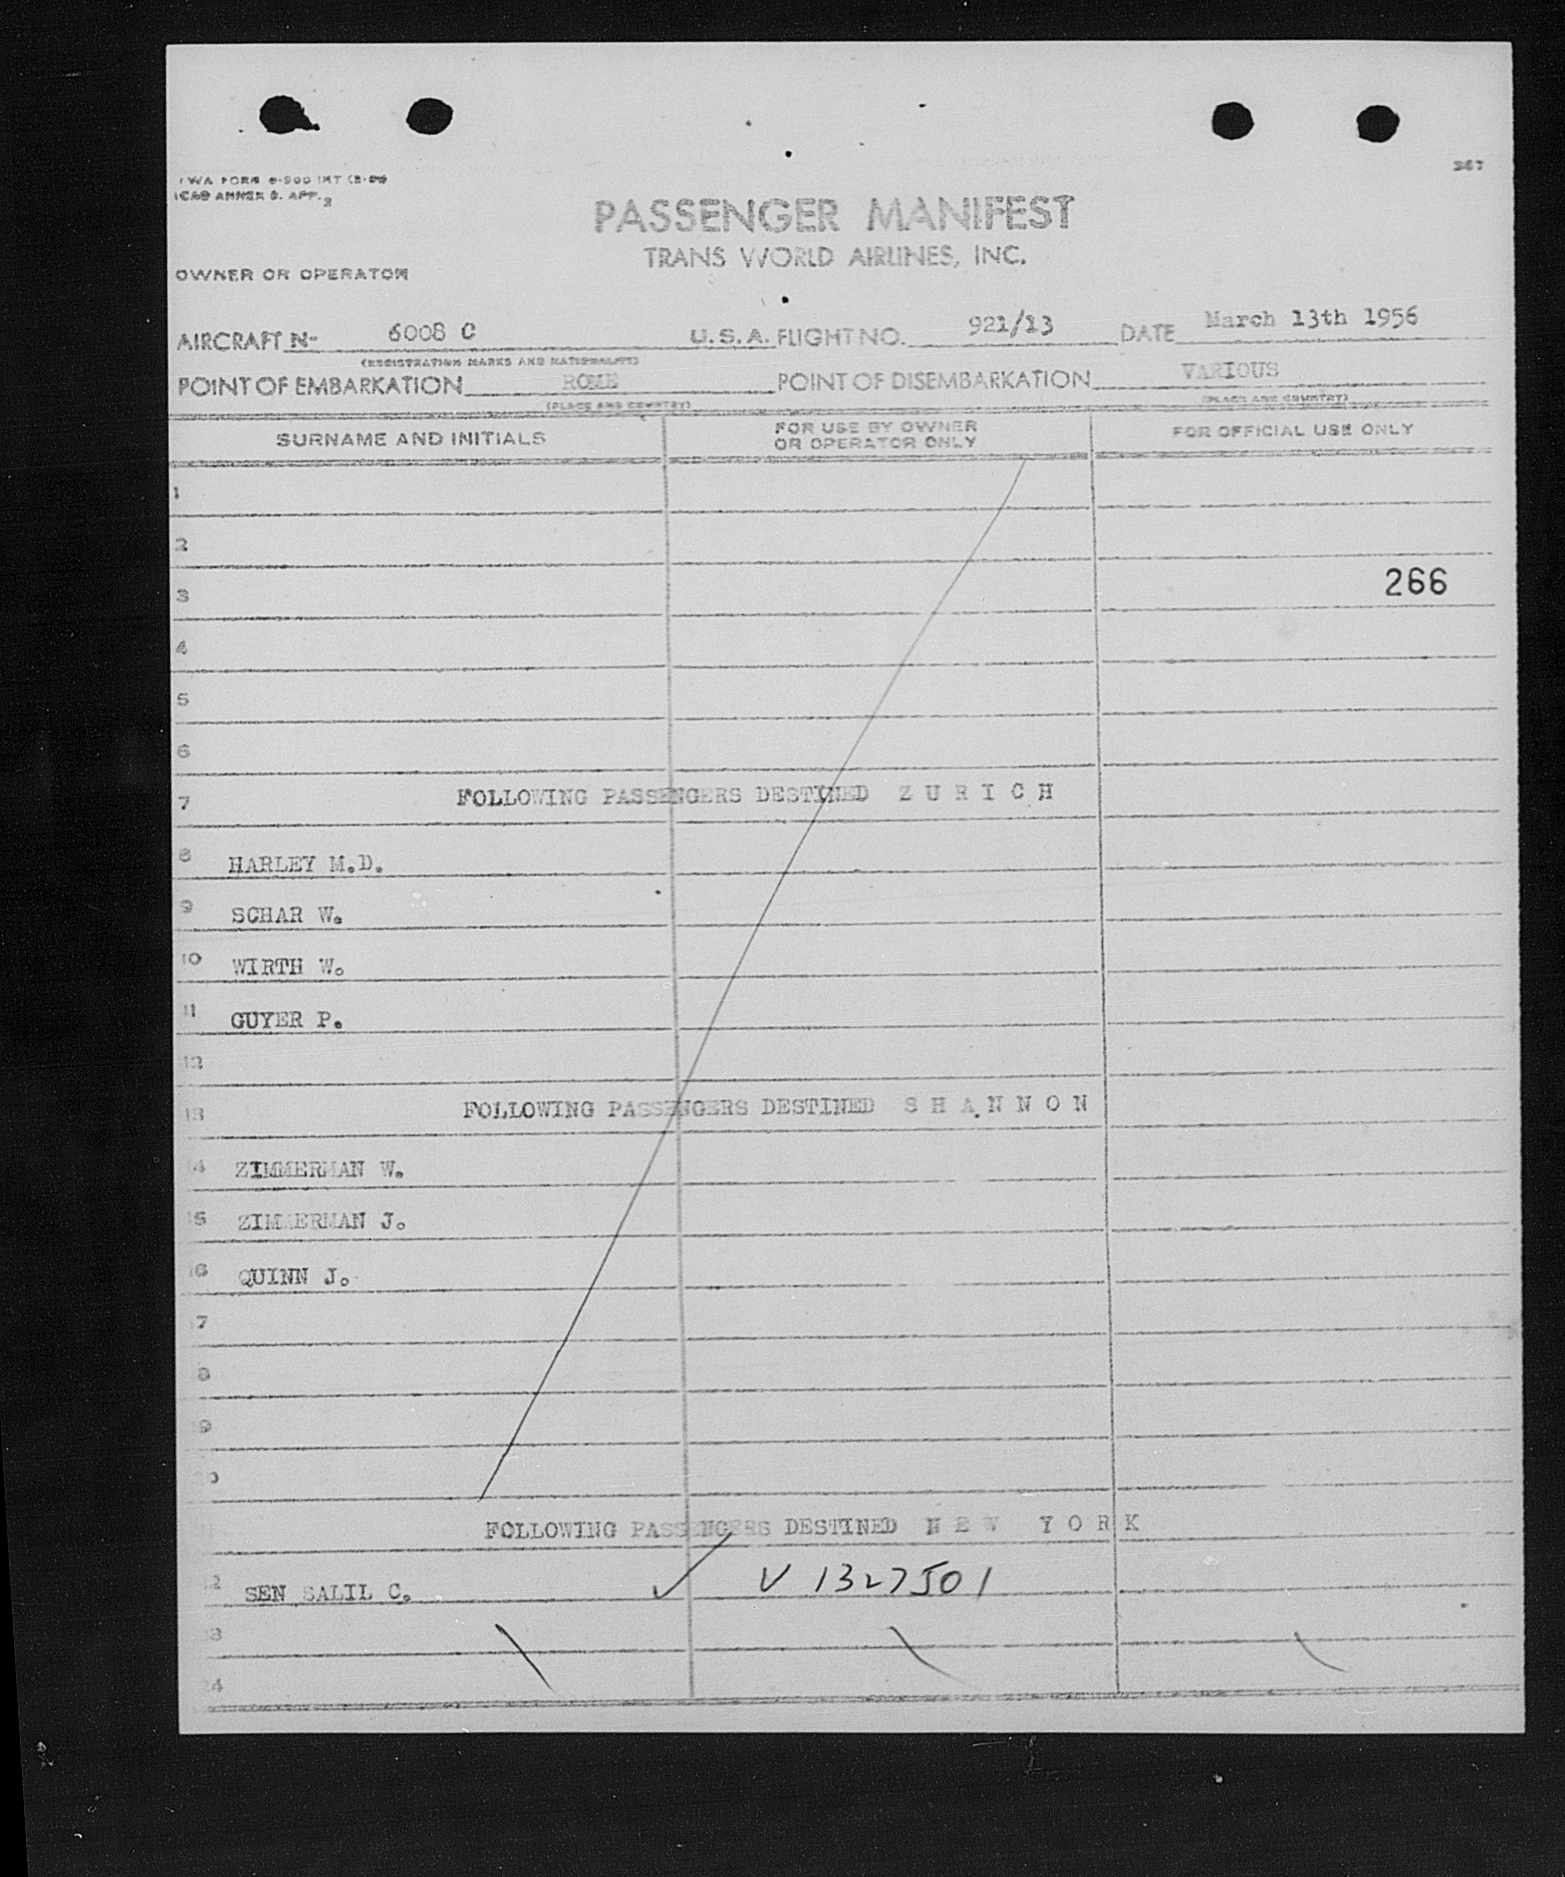 267
TWA FORM
ICAO ANNEX 9. APP. 2
PASSENGER MANIFEST
TRANS WORLD AIRLINES, INC.
OWNER OR OPERATOR
AIRCRAFT N- 6008 C U.S.A. FLIGHT NO. 921/13 DATE March 13th 1956
(REGISTRATION MARKS AND NATIONALITY)
POINT OF EMBARKATION ROME POINT OF DISEMBARKATION VARIOUS
(PLACE AND COUNTRY) (PLACE AND COUNTRY)
SURNAME AND INITIALS FOR USE BY OWNER OR OPERATOR ONLY FOR OFFICIAL USE ONLY
1
2
3 266
4
5
6
7 FOLLOWING PASSENGERS DESTINED Z U R I C H
8 HARLEY M.D.
9 SCHAR W.
10 WIRTH W.
11 GUYER P.
12
13 FOLLOWING PASSENGERS DESTINED S H A N N O N
14 ZIMMERMAN W.
15 ZIMMERMAN J.
16 QUINN J.
7
8
9
0
FOLLOWING PASSENGERS DESTINED N E W Y O R K
2 SEN SALIL C. ✓ V 1327501
3
4